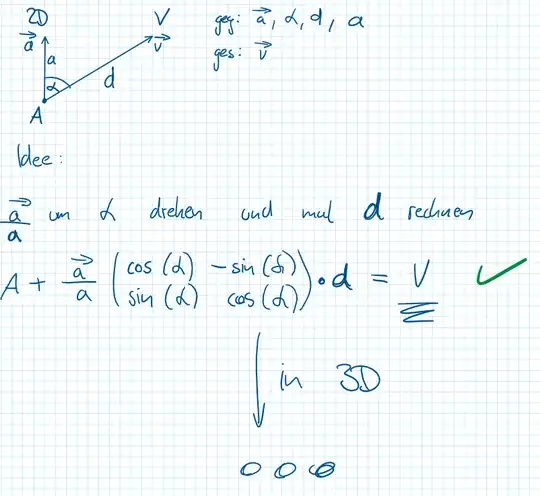 2D V geg: a⃗, α, d, a
a⃗ a v⃗ ges: v⃗
α d
A
Idee:
a⃗/a um α drehen und mal d rechnen
A + a⃗/a (cos(α) -sin(α)
sin(α) cos(α)) • d = V ✓
↓ in 3D
o o o